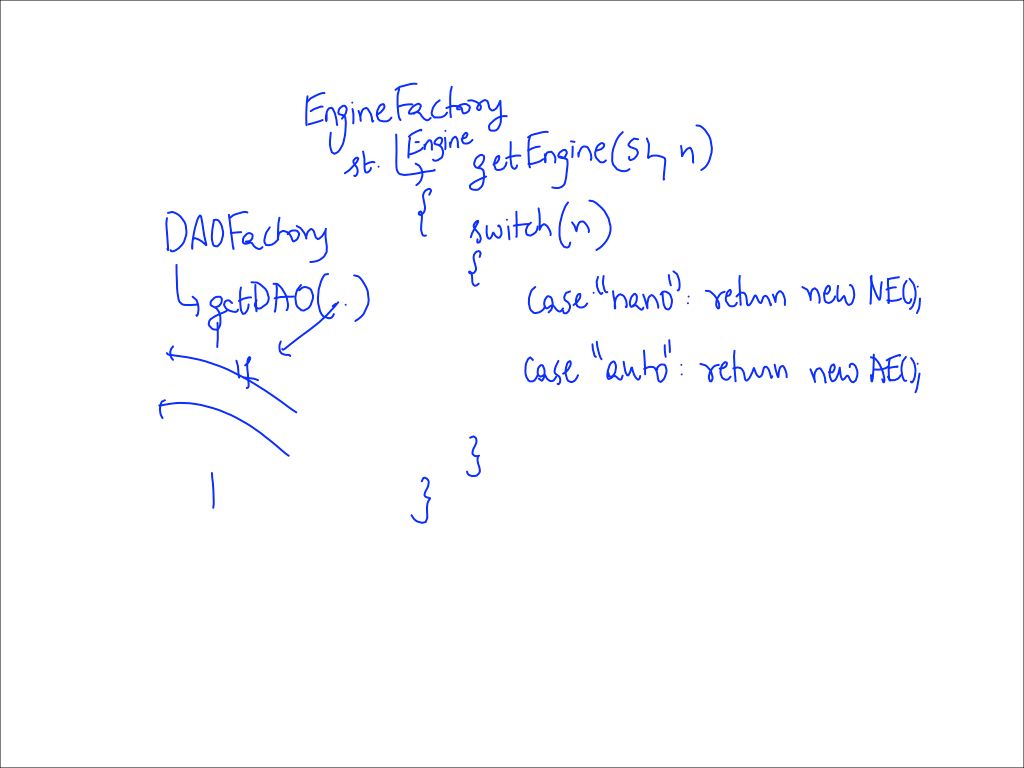 EngineFactory
st. Engine getEngine(Str n)
{
switch(n)
{
case "nano": return new NE();
case "auto": return new AE();
}
}
DAOFactory
getDAO(..)
if